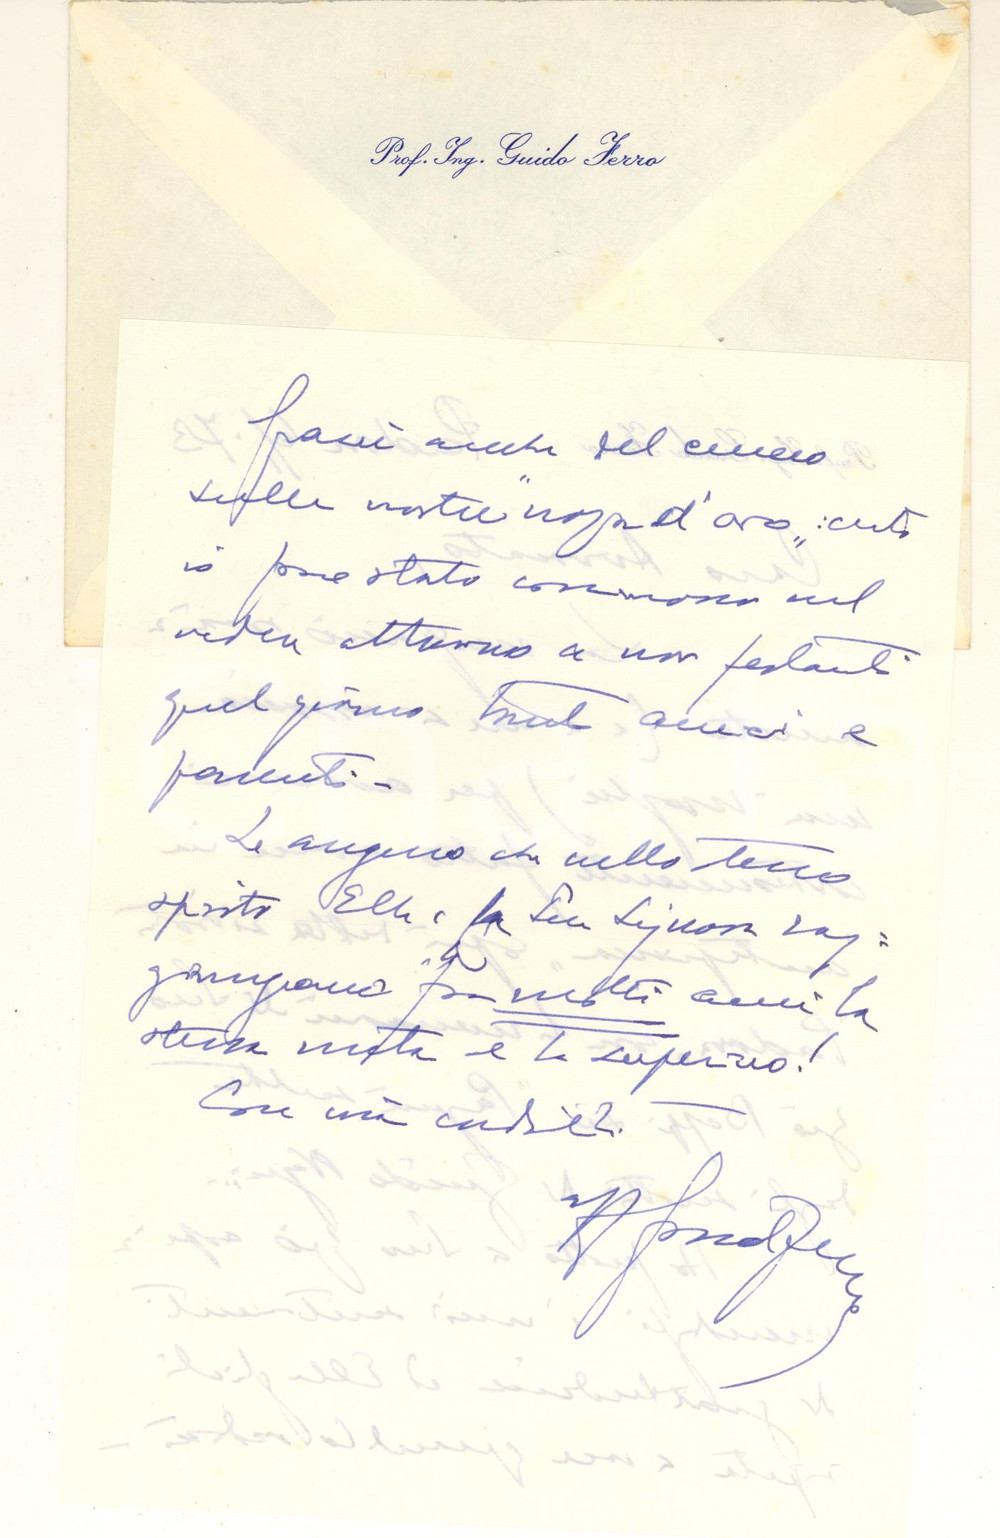 Prof. Ing. Guido Ferro
Grazie anche del cenno
sulle nostre "nozze d'oro„: certo
io fui stato commosso nel
veder attorno a noi festanti
quel giorno tanti amici e
parenti -
Le auguro che nello stesso
spirito Ella e la Sua Signora rag=
giungano fra molti anni la
stessa meta e la superino!
Con viva cordialità.
Guido Ferro